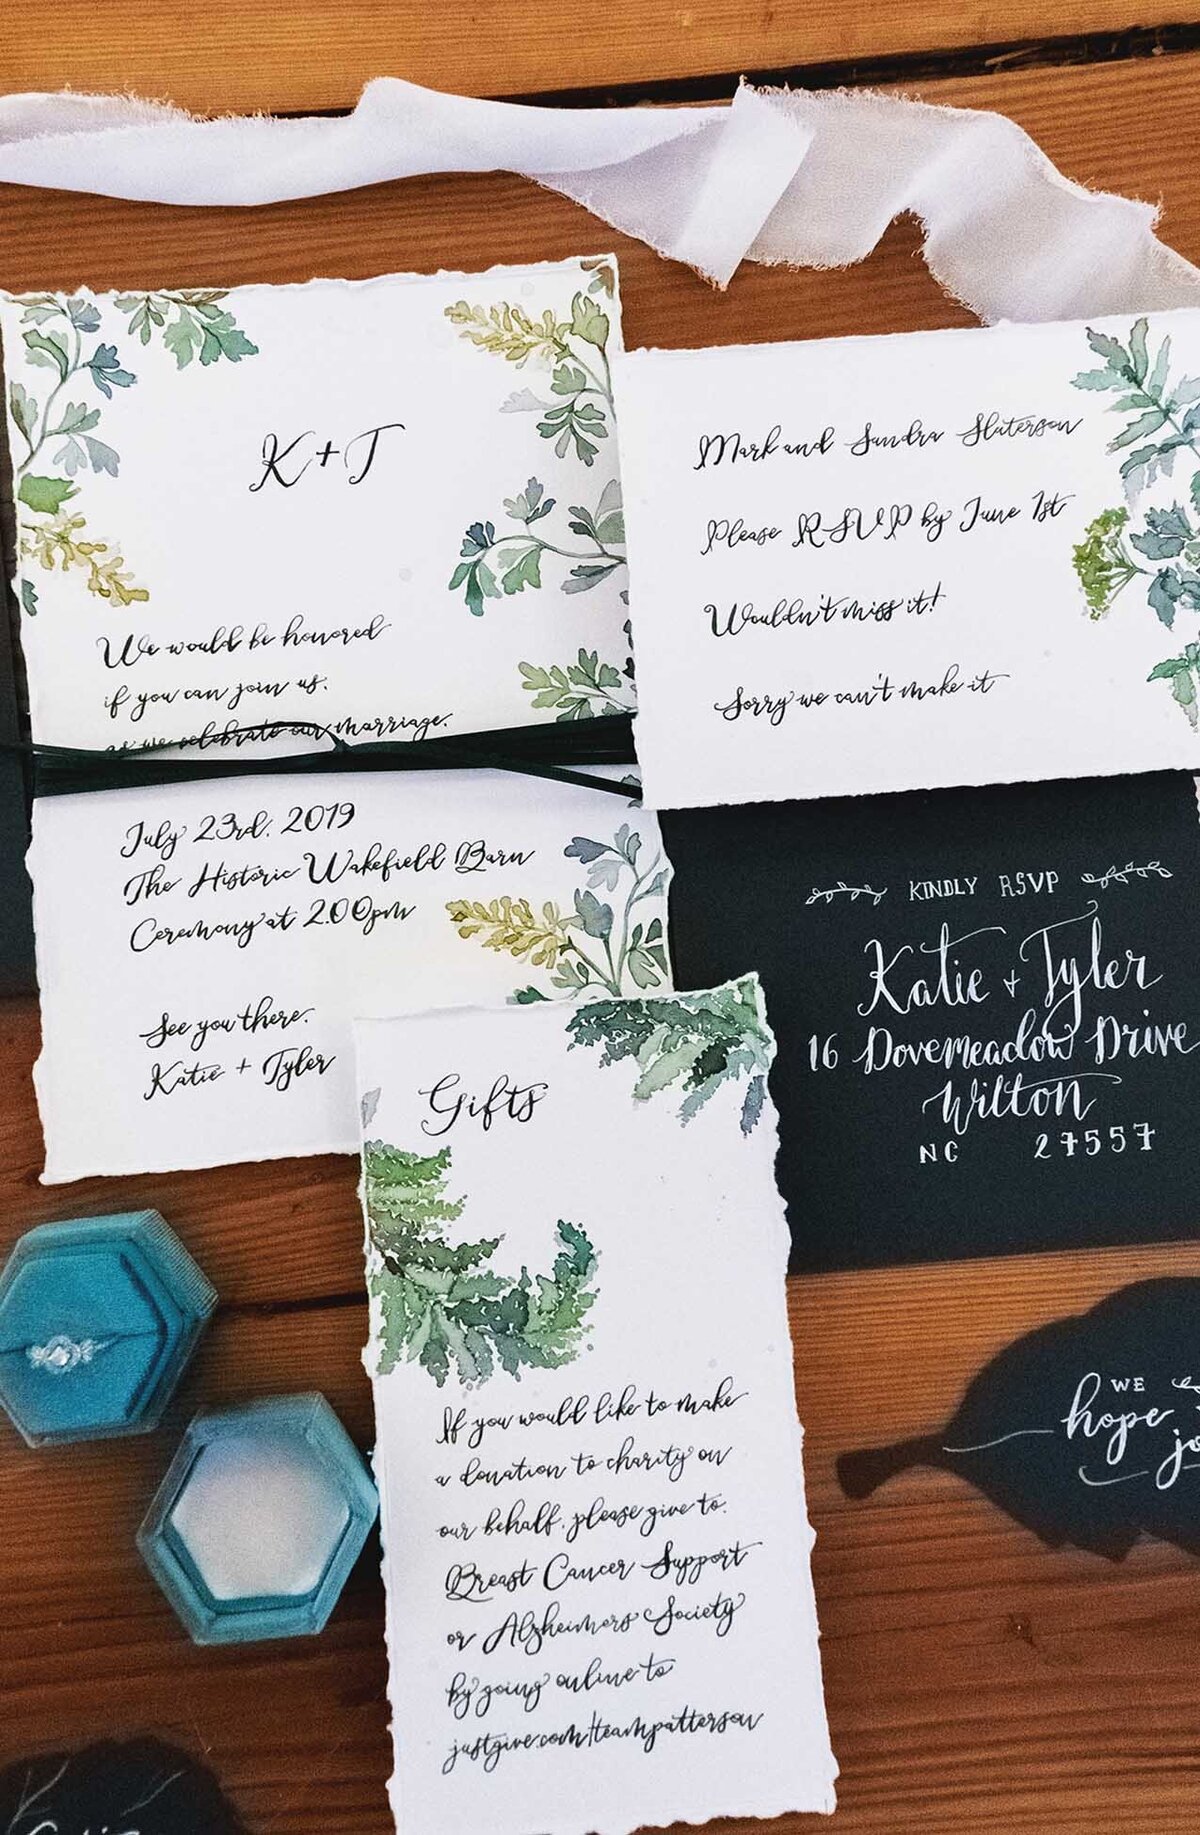 K + T
We would be honored
if you can join us.
as we celebrate our marriage.
July 23rd. 2019
The Historic Wakefield Barn
Ceremony at 2.00pm
See you there.
Katie + Tyler
Mark and Sandra Slaterson
Please RSVP by June 1st
Wouldn't miss it!
Sorry we can't make it
KINDLY RSVP
Katie + Tyler
16 Dovemeadow Drive
Wilton
NC 27557
Gifts
If you would like to make
a donation to charity on
our behalf, please give to.
Breast Cancer Support
or Alzheimers Society
by going online to
justgive.com/teampatterson
WE
hope
jo